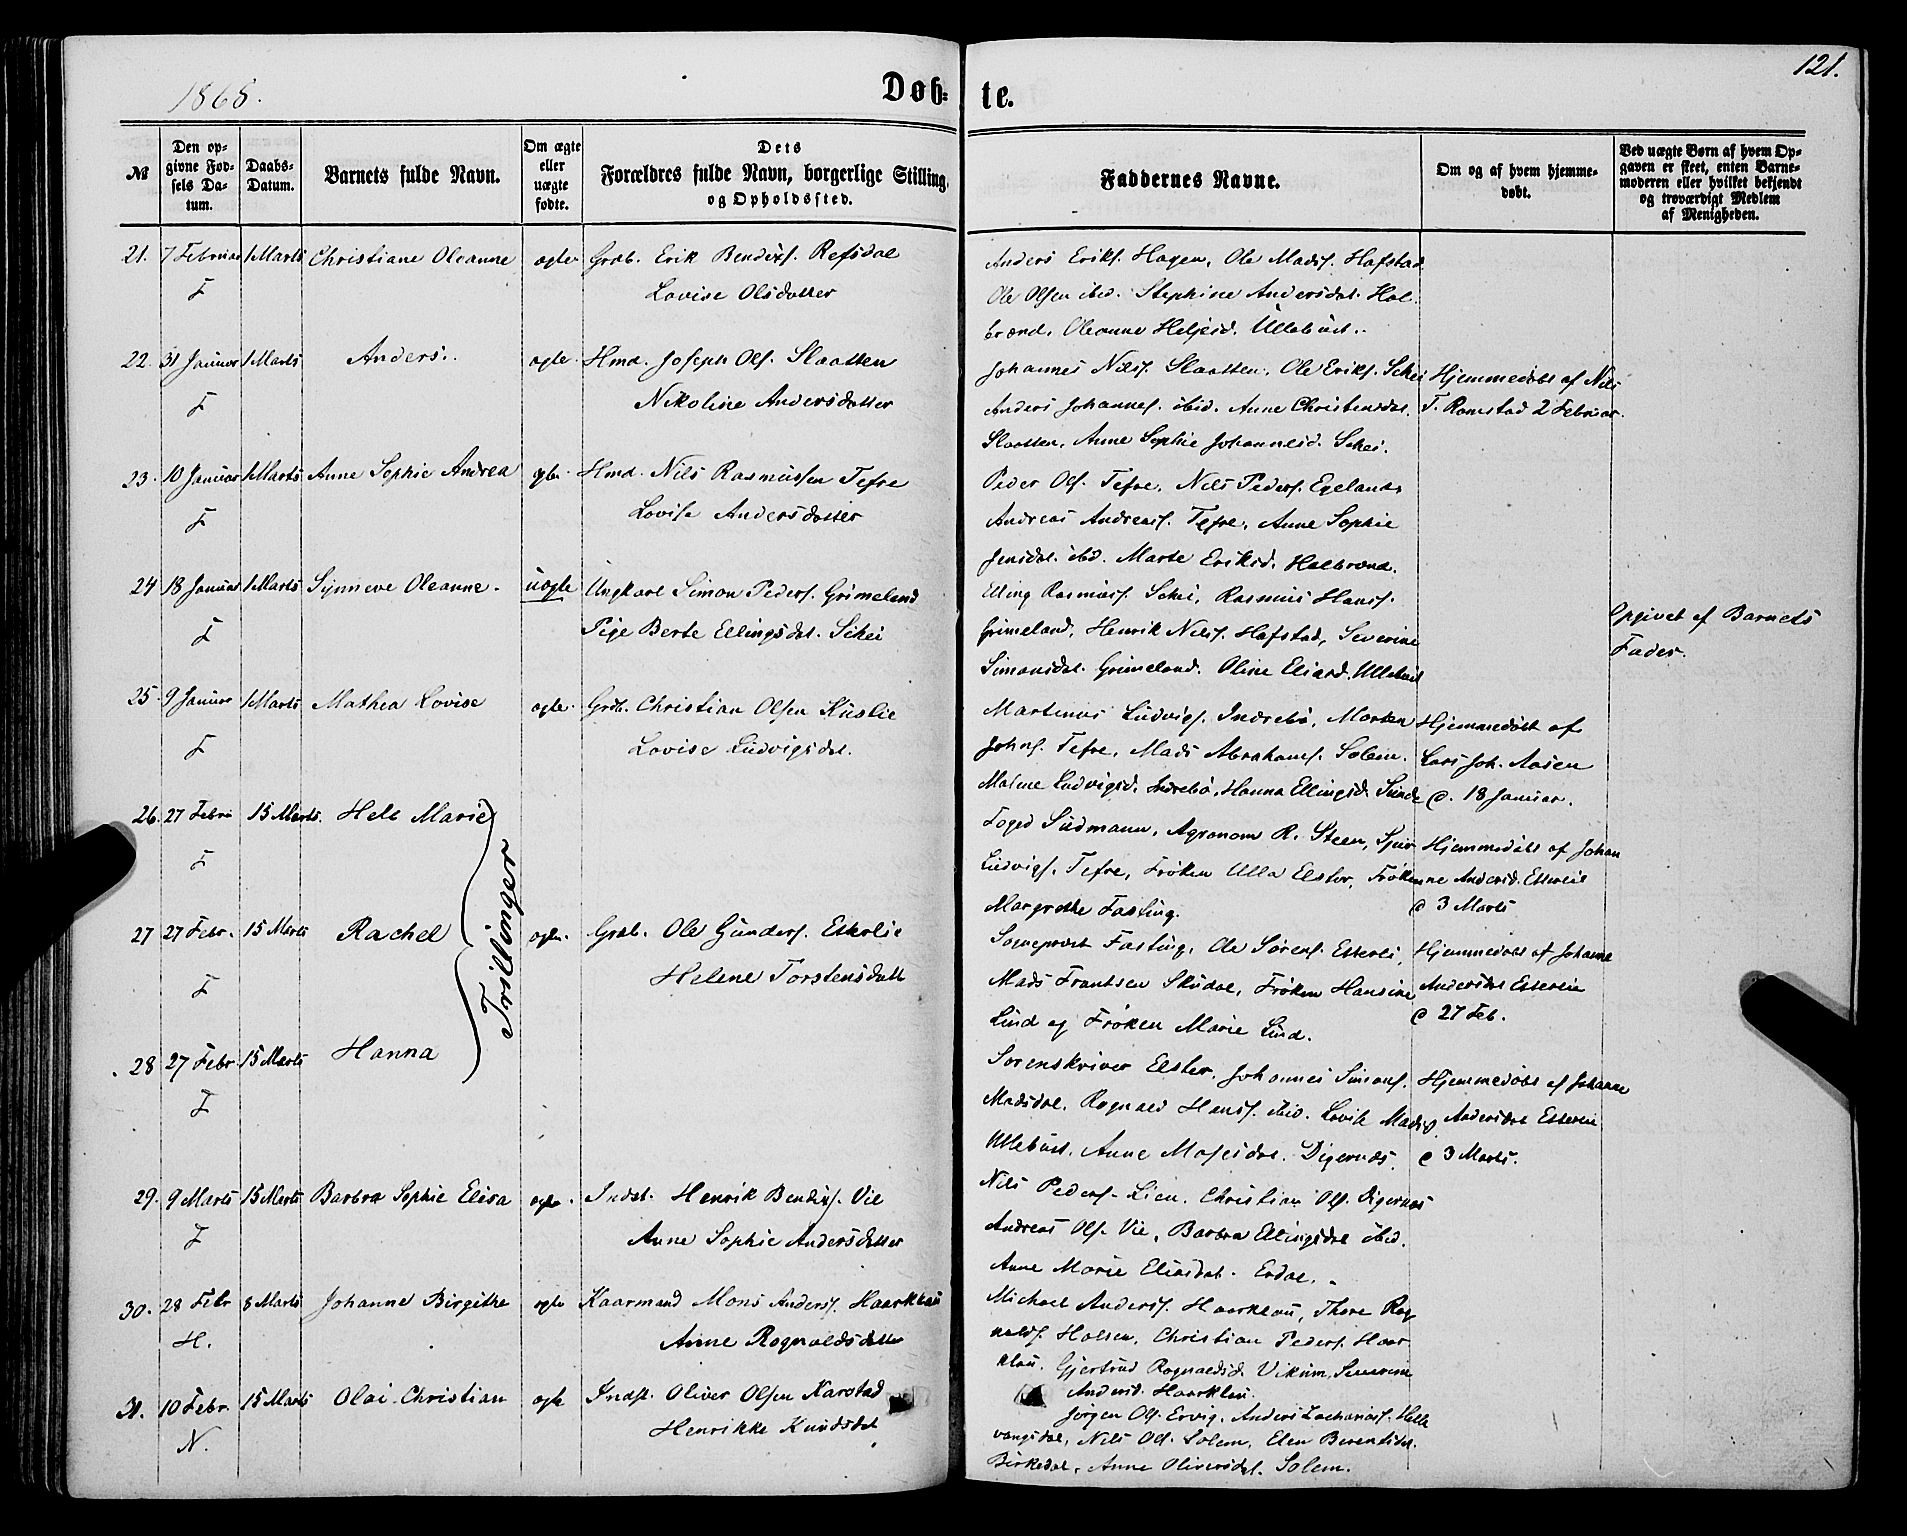 1868.
Døb-
te.
121.
№
Den op-
givne Fød-
sels Da-
tum.
Daabs-
Datum.
Barnets fulde Navn.
Om ægte
eller
uægte
fødte.
Dets
Forældres fulde Navn, borgerlige Stilling,
og Opholdssted.
Faddernes Navne.
Om og af hvem hjemme-
døbt.
Ved uægte Børn af hvem Op-
gaven er skeet, enten Barne-
moderen eller hvilket bekjendt
og troværdigt Medlem
af Menigheden.
21. 7 Februar 1 Marts Christiane Oleanne ægte Grdb. Erik Bendixs. Refsdal
F
Lovise Olsdatter
Anders Eriks. Hagen, Ole Mads. Hafstad
Ole Olsen ibid. Stephine Andersdat. Hol-
brænd, Oleanne Heljesd. Ullebust.
22. 31 Januar 1 Marts Anders. ægte Hmd. Joseph Ols. Slaatten
F
Nikoline Andersdatter
Johannes Nils. Slaatten, Ole Eriks. Schei
Anders Johannes. ibid. Anne Christensdat.
Slaatten, Anne Sophie Johannesd. Schei.
Hjemmedøbt af Nils
T. Ramstad 2 Februar.
23. 10 Januar 1 Marts Anne Sophie Andrea ægte Hmd. Nils Rasmussen Tefre
F
Lovise Andersdatter
Peder Ols. Tefre, Nils Peders. Egeland,
Andreas Andreass. Tefre, Anne Sophie
Jensdat. ibid. Marte Eriksd. Holbrænd.
24 18 Januar 1 Marts Synneve Oleanne. uægte Ungkarl Simon Peders. Grimeland
F
Pige Berte Ellingsdat. Schei
Elling Rasmus. Schei, Rasmus Hans.
Grimeland, Henrik Nils. Hafstad, Severine
Simonsdat. Grimeland. Oline Eliasd. Ullebust
Opgivet af Barnets
Fader.
25. 9 Januar 1 Marts Mathea Lovise ægte Grdb. Christian Olsen Kuslie
F
Lovise Ludvigsdat.
Martinus Ludvigs. Indrebø, Morten
Johns. Tefre, Mads Abrahams. Solem.
Malene Ludvigsd. Indrebø, Hanna Ellingsd. Sunde
Hjemmedøbt af
Lars Joh. Aasen
d. 18 Januar.
26. 27 Febr 15 Marts. Hele Marie
F
Foged Südmann, Agronom R. Steen, Sjur
Ludvigs. Tefre, Frøken Ulla Elster, Frøken
Margrethe Fasting.
Hjemmedøbt af Johan
ne Andersd. Esterlie
d 3 Marts
Trillinger
27 27 Febr. 15 Marts Rachel ægte. Grdb. Ole Gunders. Esterlie
F
Helene Torstensdatt
Sogneprest Fasting, Ole Sørens. Esterli,
Mads Frantsen Skudal, Frøken Hansine
Lind og Frøken Marie Lind.
Hjemmedøbt af Johanne
Andersdat Esterlie
d 27 Feb.
28 27 Febr 15 Marts Hanna
F
Sorenskriver Elster, Johannes Simons.
Madsdal, Rognald Hans. ibid. Lovise Madsd.
Ullebust, Anne Mosesdat. Digernæs.
Hjemmedøbt af Johanne
Andersdat Esterlie
d 3 Marts.
29. 9 Marts 15 Marts Barbra Sophie Elisa ægte. Indst. Henrik Bendixs. Vie
F
Anne Sophie Andersdatter
Nils Peders. Lien, Christian Ols. Digernæs
Andreas Ols. Vie, Barbra Ellingsdat ibid.
Anne Marie Eliasdat. Erdal.
30. 28 Febr 8 Marts Johanne Birgithe ægte Kaarmand Mons Anders. Haarklau
H.
Anne Rognaldsdatter
Michael Anders. Haarklau, Thore Rog
nalds. Holsen, Christian Peders. Haar
klau. Gjertrud Rognaldsd. Vikum, Severine
Andersd. Haarklau.
31. 10 Febr. 15 Marts Olai Christian ægte Indst. Oliver Olsen Karstad
N.
Henrikke Knudsdat
Jørgen Ols. Ervig, Anders Zachariass. Helle
vangsdal, Nils Ols. Solem, Elen Berentsdat.
Birkedal, Anne Oliversdat. Solem.